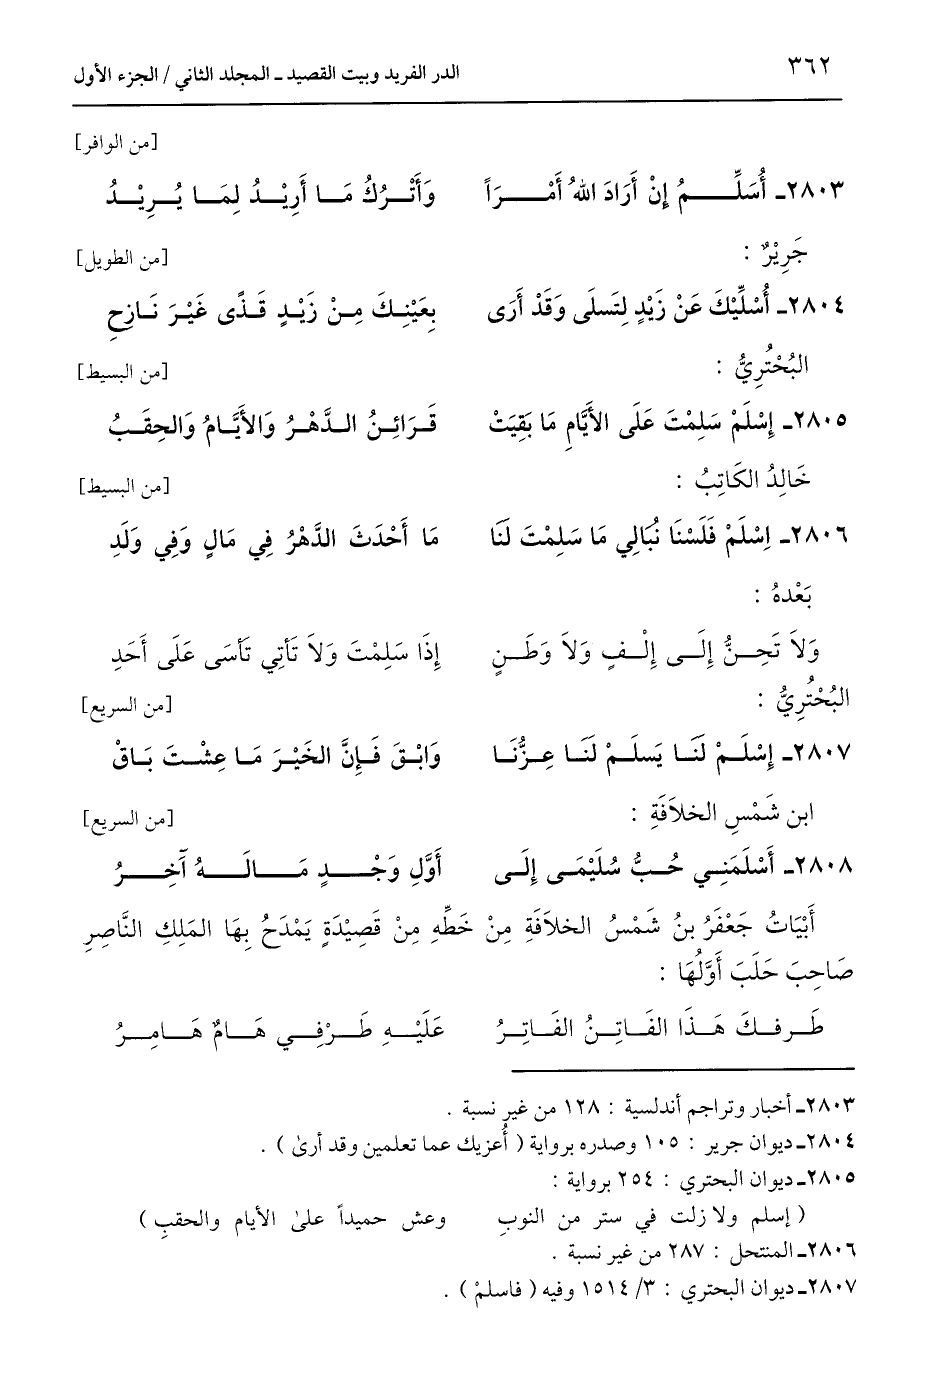 ٣٦٢ الدر الفريد وبيت القصيد ـ المجلد الثاني / الجزء الأول
[من الوافر]
٢٨٠٣ـ أُسَلِّمُ إِنْ أَرَادَ اللهُ أَمْرَاً وَأَتْرُكُ مَا أَرِيْدُ لِمَا يُرِيْدُ
جَرِيْرٌ : [من الطويل]
٢٨٠٤ـ أُسْلِّيْكَ عَنْ زَيْدٍ لِتَسلَى وَقَدْ أَرَى بِعَيْنِكَ مِنْ زَيْدٍ قَذًى غَيْرَ نَازِحِ
البُحْتُرِيُّ : [من البسيط]
٢٨٠٥ـ إِسْلَمْ سَلِمْتَ عَلَى الأَيَّامِ مَا بَقِيَتْ قَرَائِنُ الدَّهْرُ وَالأَيَّامُ وَالحِقَبُ
خَالِدُ الكَاتِبُ : [من البسيط]
٢٨٠٦ـ اِسْلَمْ فَلَسْنَا نُبَالِي مَا سَلِمْتَ لَنَا مَا أَحْدَثَ الدَّهْرُ فِي مَالٍ وَفِي وَلَدِ
بَعْدهُ :
وَلاَ تَحِنُّ إِلَى إِلْفٍ وَلاَ وَطَنٍ إِذَا سَلِمْتَ وَلاَ تَأتِي تَأسَى عَلَى أَحَدِ
البُحْتُرِيُّ : [من السريع]
٢٨٠٧ـ إِسْلَمْ لَنَا يَسلَمْ لَنَا عِزُّنَا وَابْقَ فَإِنَّ الخَيْرَ مَا عِشْتَ بَاقْ
ابن شَمْسِ الخلاَفَةِ : [من السريع]
٢٨٠٨ـ أَسْلَمَنِي حُبُّ سُلَيْمَى إِلَى أَوَّلِ وَجْدٍ مَالَهُ آخِرُ
أَبْيَاتُ جَعْفَرُ بنُ شَمْسُ الخلاَفَةِ مِنْ خَطِّهِ مِنْ قَصِيْدَةٍ يَمْدَحُ بِهَا المَلِكِ النَّاصِرِ
صَاحِبَ حَلَبَ أَوَّلُهَا :
طَرفكَ هَذَا الفَاتِنُ الفَاتِرُ عَلَيْهِ طَرْفِي هَامٌ هَامِرُ
٢٨٠٣ـ أخبار وتراجم أندلسية : ١٢٨ من غير نسبة .
٢٨٠٤ـ ديوان جرير : ١٠٥ وصدره برواية ( أُعزيك عما تعلمين وقد أرىٰ ) .
٢٨٠٥ـ ديوان البحتري : ٢٥٤ برواية :
( إسلم ولا زلت في ستر من النوبِ وعش حميداً علىٰ الأيام والحقبِ )
٢٨٠٦ـ المنتحل : ٢٨٧ من غير نسبة .
٢٨٠٧ـ ديوان البحتري : ٣/ ١٥١٤ وفيه ( فاسلمْ ) .